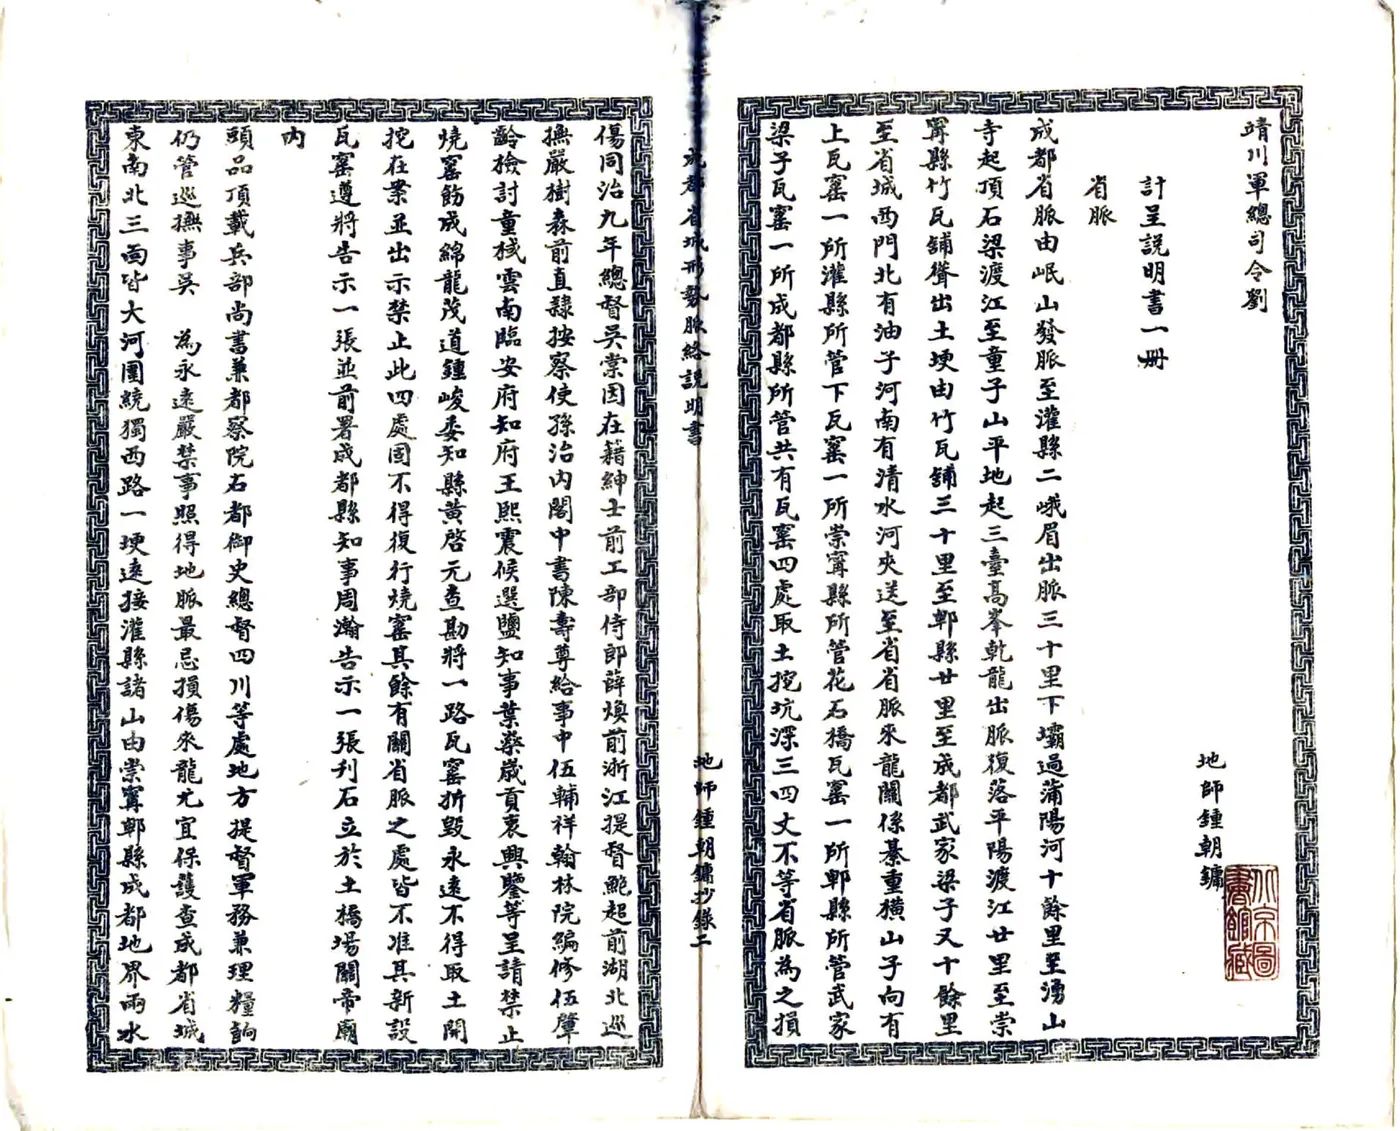 靖川軍總司令劉
計呈説明書一冊
地師鍾朝鏞
北京圖
書館藏
省脈
成都省脈由岷山發脈至灌縣二峨眉出脈三十里下壩過蒲陽河十餘里至湧山
寺起頂石梁渡江至童子山平地起三臺高峯乾龍出脈復落平陽渡江廿里至崇
寗縣竹瓦舖聳出土埂由竹瓦舖三十里至郫縣廿里至成都武家梁子又十餘里
至省城西門北有油子河南有清水河夾送至省省脈來龍關係綦重橫山子向有
上瓦窰一所灌縣所管下瓦窰一所崇寗縣所管花石橋瓦窰一所郫縣所管武家
梁子瓦窰一所成都縣所管共有瓦窰四處取土挖坑深三四丈不等省脈為之損
成都省城形勢脈絡説明書
地師鍾朝鏞抄錄二
傷同治九年總督吳棠因在籍紳士前工部侍郎薛煥前浙江提督鮑超前湖北巡
撫嚴樹森前直隸按察使孫治內閣中書陳壽尊給事中伍輔祥翰林院編修伍肇
齡檢討童棫雲南臨安府知府王熙震候選鹽知事葉蔡歲貢袁興鑒等呈請禁止
燒窰飭成綿龍茂道鍾峻委知縣黃啓元查勘將一路瓦窰折毀永遠不得取土開
挖在案並出示禁止此四處固不得復行燒窰其餘有關省脈之處皆不准其新設
瓦窰遵將告示一張並前署成都縣知事周瀚告示一張刊石立於土橋場關帝廟
內
頭品頂戴兵部尚書兼都察院右都御史總督四川等處地方提督軍務兼理糧餉
仍管巡撫事吳　為永遠嚴禁事照得地脈最忌損傷來龍尤宜保護查成都省城
東南北三面皆大河圍繞獨西路一埂遠接灌縣諸山由崇寗郫縣成都地界兩水